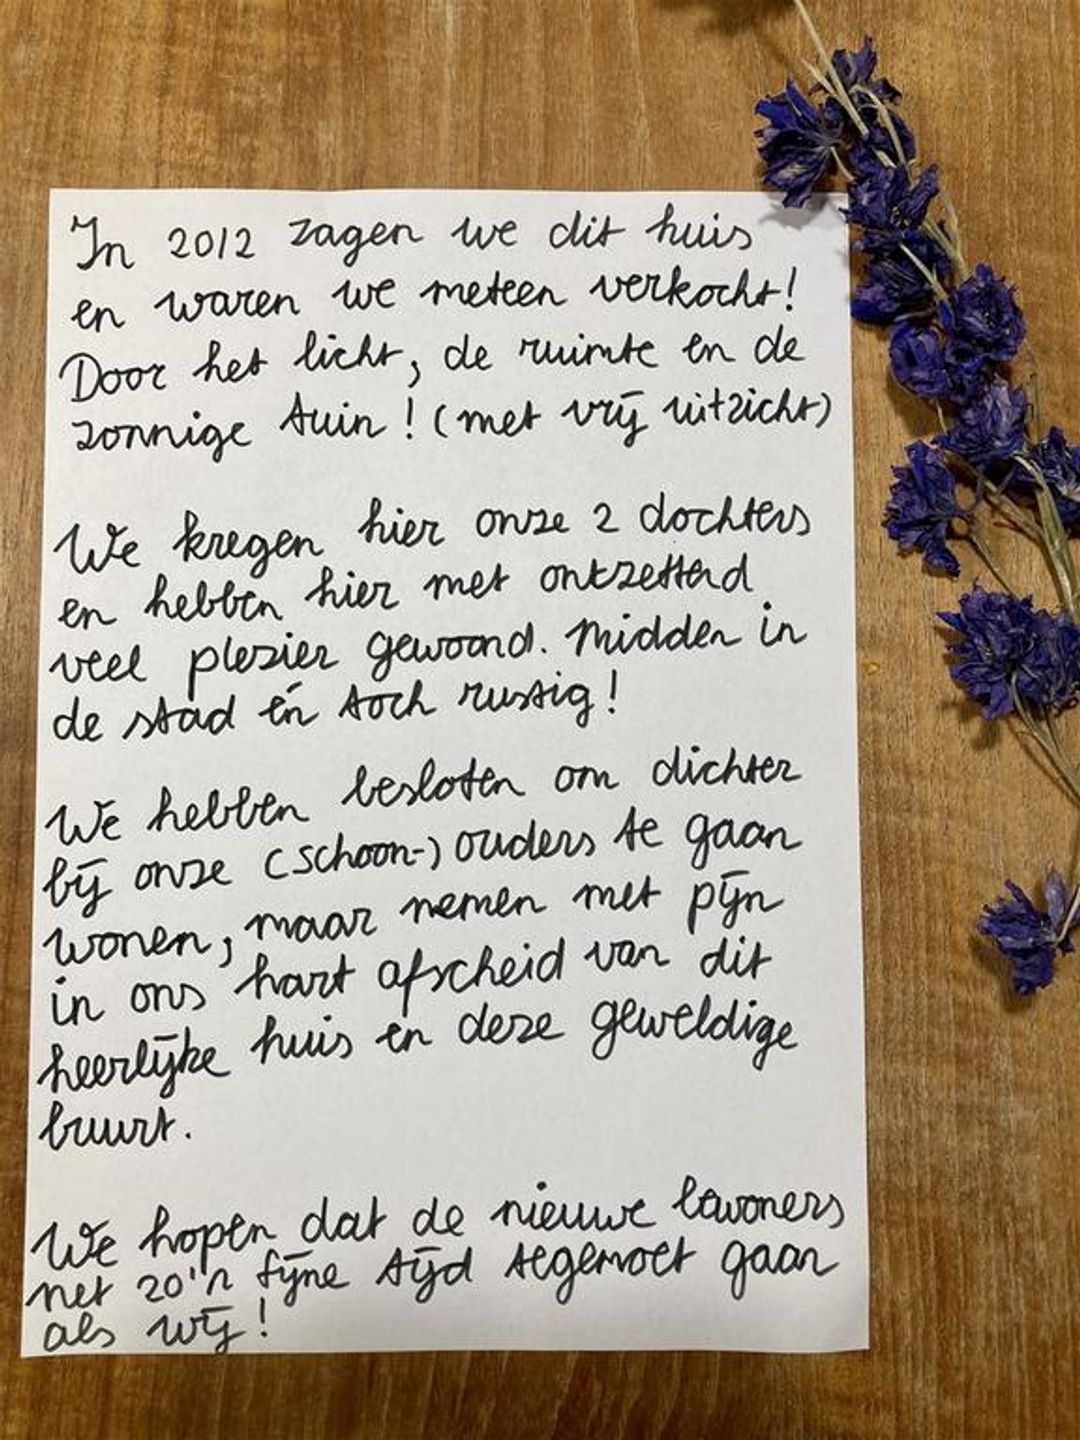 In 2012 zagen we dit huis
en waren we meteen verkocht!
Door het licht, de ruimte en de
zonnige tuin! (met vrij uitzicht)
We kregen hier onze 2 dochters
en hebben hier met ontzettend
veel plezier gewoond. Midden in
de stad én toch rustig!
We hebben besloten om dichter
bij onze (schoon-) ouders te gaan
wonen, maar nemen met pijn
in ons hart afscheid van dit
heerlijke huis en deze geweldige
buurt.
We hopen dat de nieuwe bewoners
net zo'n fijne tijd tegemoet gaan
als wij!